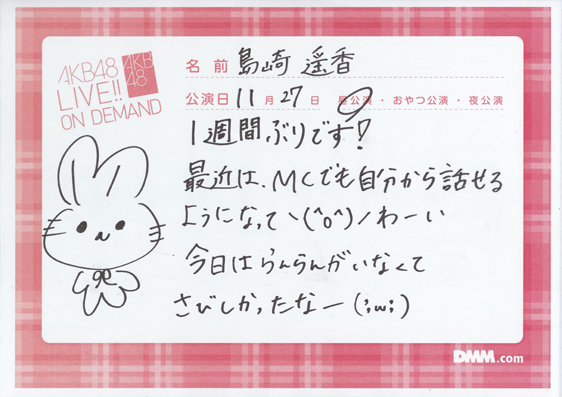 AKB48
LIVE!!
ON DEMAND
AKB
48
名前 島崎 遥香
公演日 11月27日 昼公演・おやつ公演・夜公演
1週間ぶりです!
最近は、MCでも自分から話せる
ようになってヽ(^o^)ノわーい
今日はらんらんがいなくて
さびしかったなー(;ω;)
DMM.com